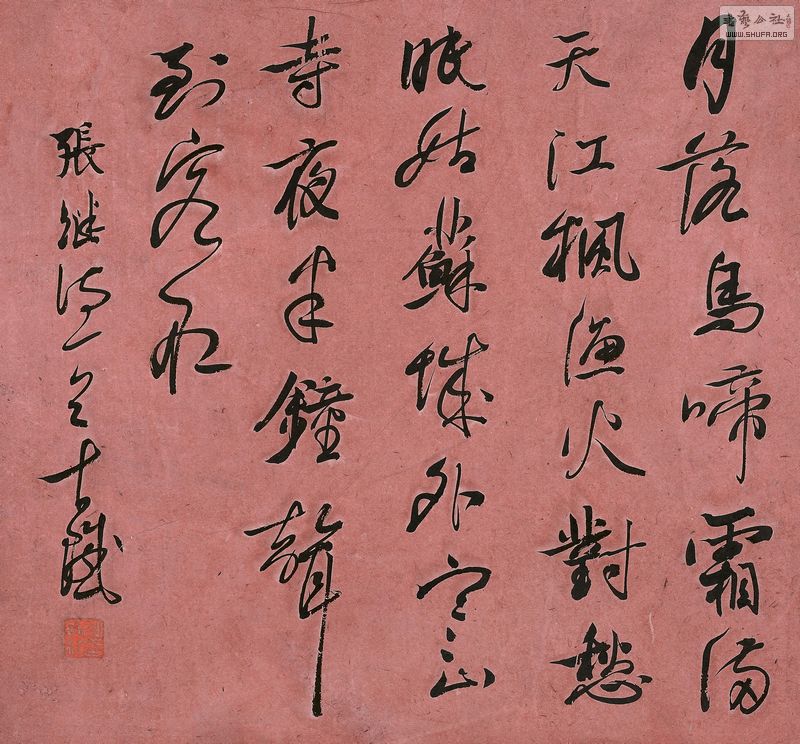 月落烏啼霜滿
天江楓漁火對愁
眠姑蘇城外寒山
寺夜半鐘聲
到客船
張繼詩
書藝公社
WWW.SHUFA.ORG